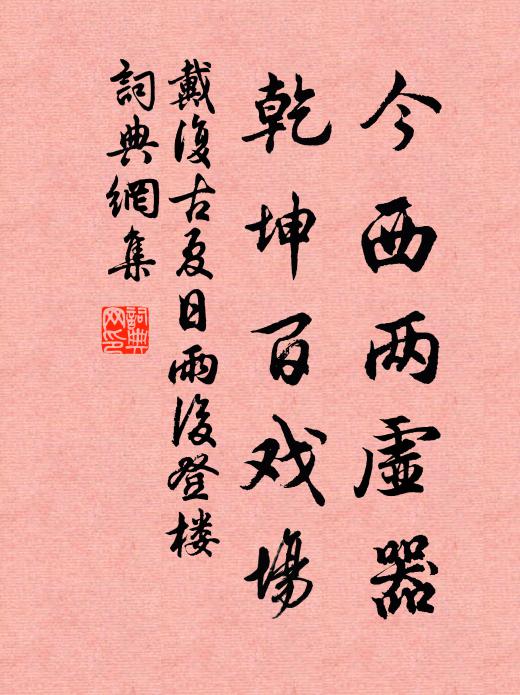 今西两虚器
乾坤百戏場
戴復古夏日雨後登楼
詞典網集
詞典
网印